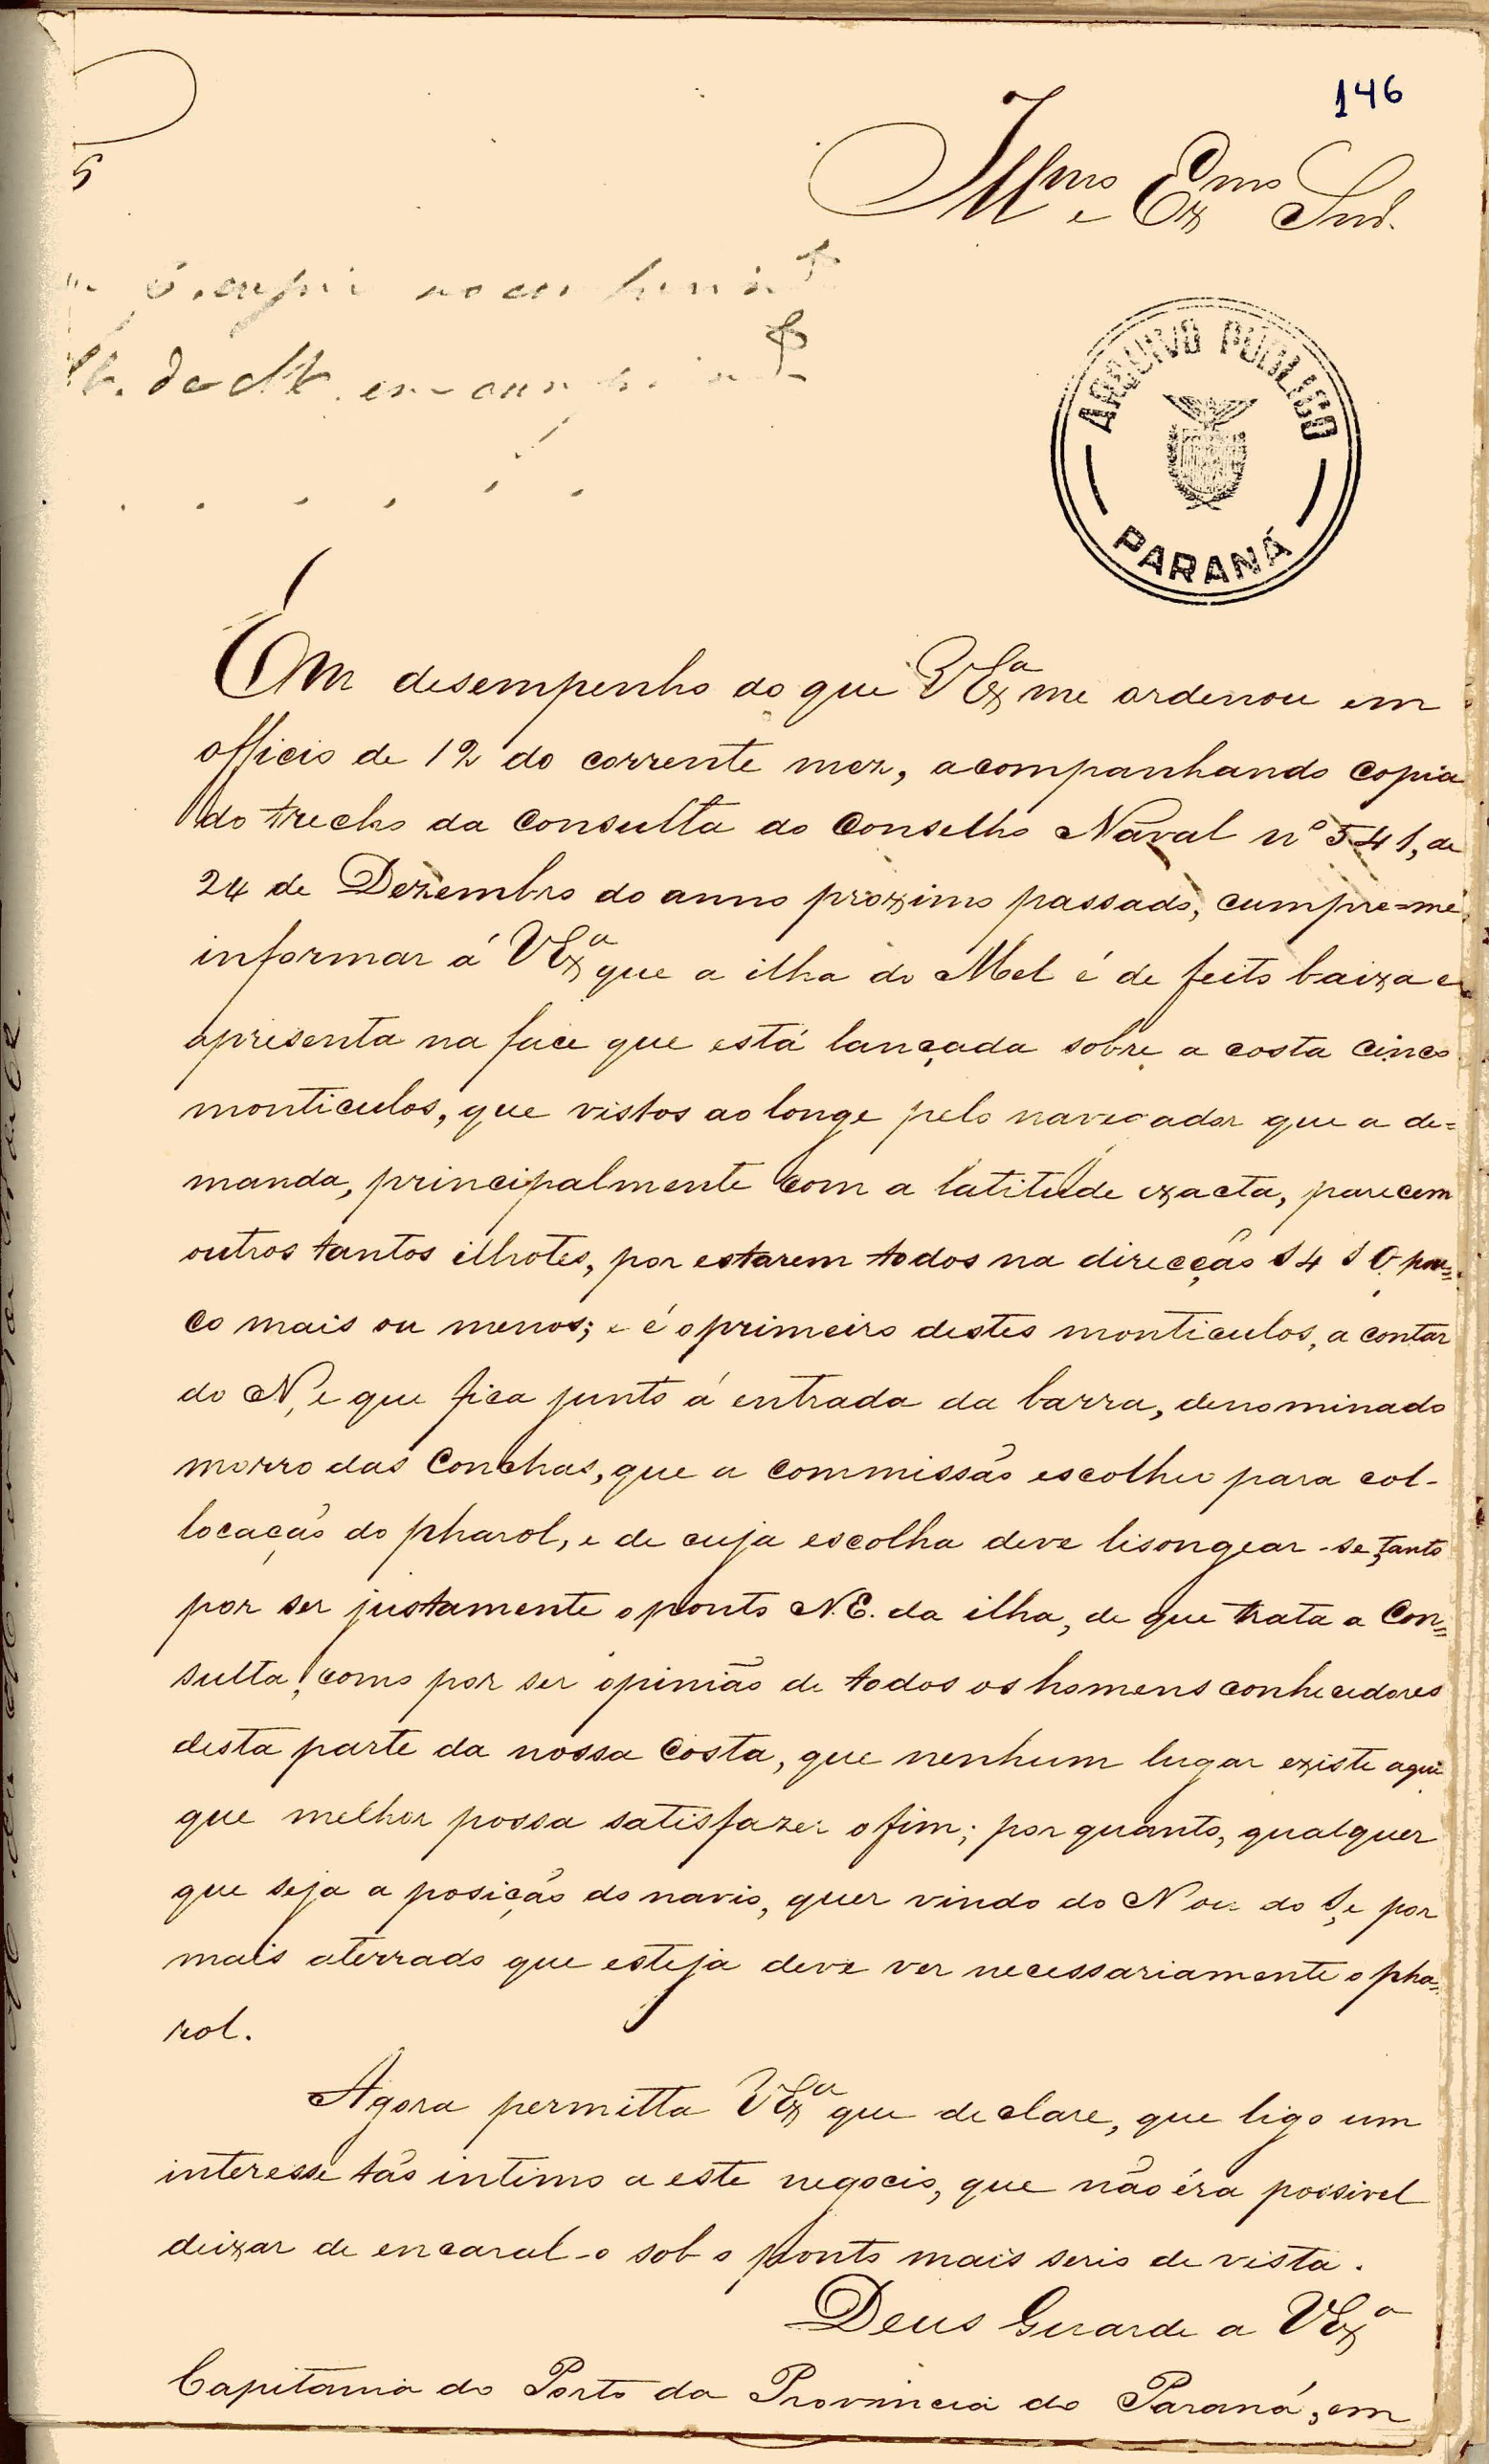 146
Illmo e Exmo Snr.
ARQUIVO PÚBLICO
PARANÁ
Em desempenho do que VExª me ordenou em
officio de 12 do corrente mez, acompanhando copia
do trecho da consulta do Conselho Naval nº 541, de
24 de Dezembro do anno proximo passado, cumpre=me
informar á VExª que a ilha do Mel é de feito baixa e
apresenta na face que está lançada sobre a costa cinco
monticulos, que vistos ao longe pelo navegador que a de=
manda, principalmente com a latitude exacta, parecem
outros tantos ilhotes, por estarem todos na direcção S 4 S O pou=
co mais ou menos; e é o primeiro destes monticulos, a contar
do N, e que fica junto á entrada da barra, denominado
morro das Conchas, que a commissão escolheu para col-
locação do pharol, e de cuja escolha deve lisongear-se, tanto
por ser justamente o ponto N.E. da ilha, de que trata a Con=
sulta, como por ser opinião de todos os homens conhecedores
desta parte da nossa Costa, que nenhum lugar existe aqui
que melhor possa satisfazer o fim; por quanto, qualquer
que seja a posição do navio, quer vindo do N ou do S, e por
mais aterrado que esteja deve ver necessariamente o pha=
rol.
Agora permitta VExª que declare, que ligo um
interesse tão intimo a este negocio, que não éra possivel
deixar de encaral-o sob o ponto mais serio de vista.
Deus Guarde a VExª
Capitania do Porto da Provincia do Paraná, em